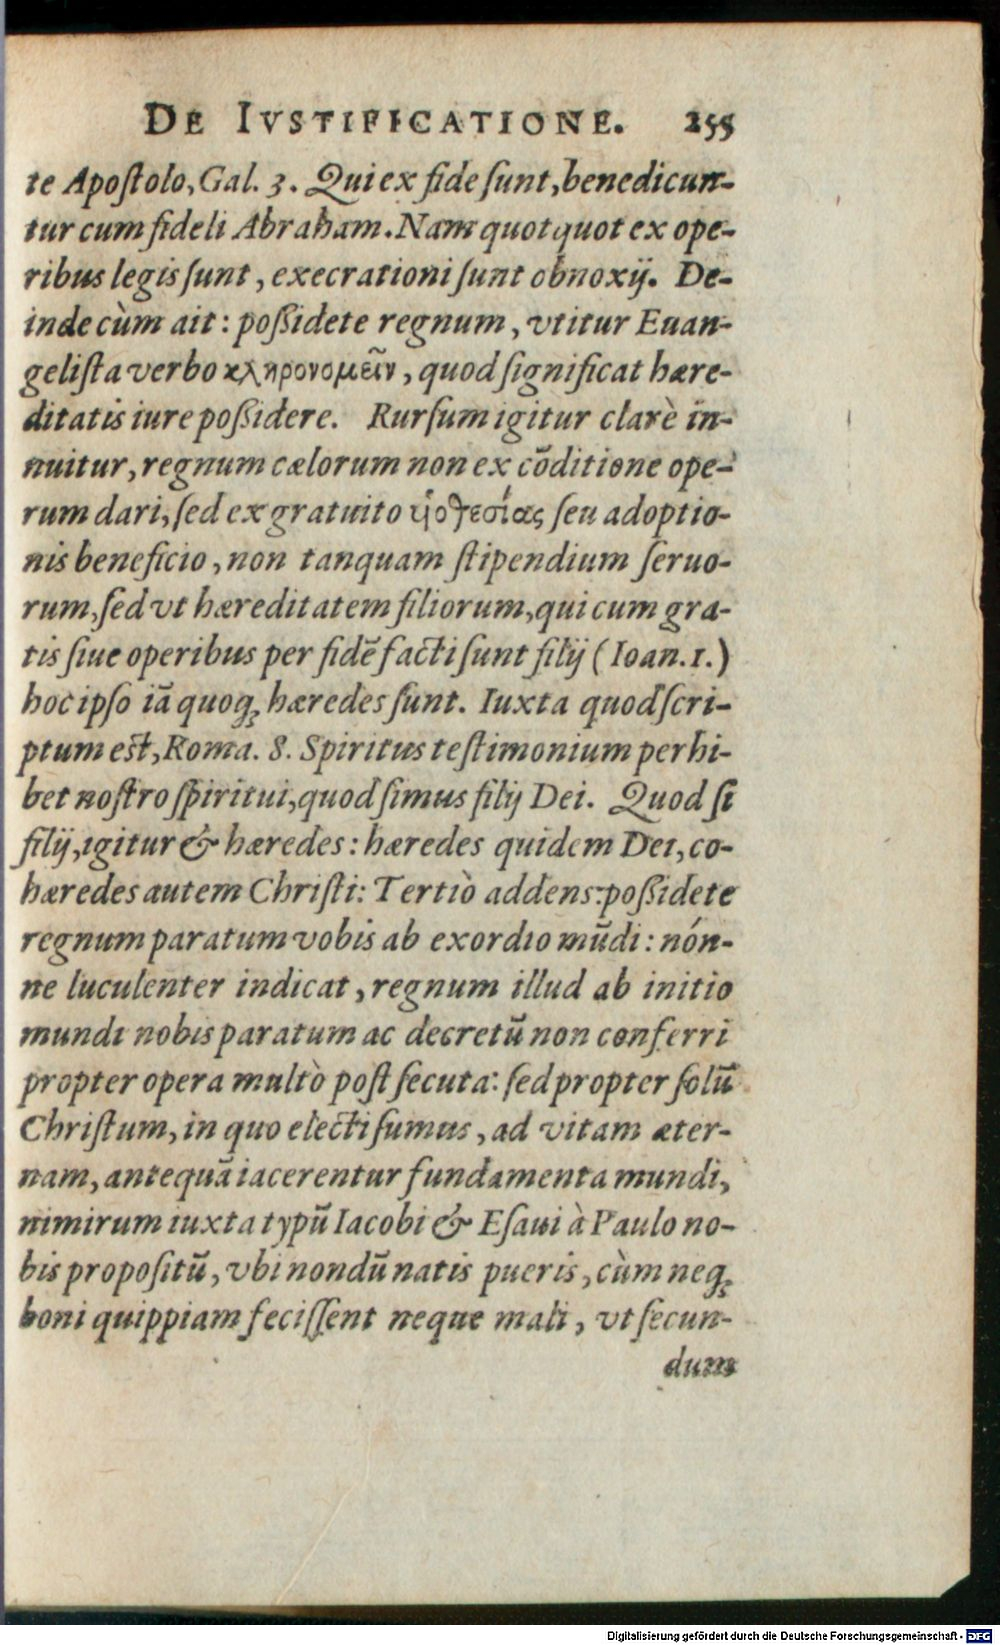 DE IVSTIFICATIONE. 255
te Apoſtolo, Gal. 3. Qui ex fide ſunt, benedicun-
tur cum fideli Abraham. Nam quotquot ex ope-
ribus legis ſunt, execrationi ſunt obnoxij. De-
inde cùm ait: poßidete regnum, vtitur Euan-
geliſta verbo κληρονομεῖν, quod ſignificat hære-
ditatis iure poßidere. Rurſum igitur clarè in-
nuitur, regnum cælorum non ex cōditione ope-
rum dari, ſed ex gratuito ὑιοθεσίας ſeu adoptio-
nis beneficio, non tanquam ſtipendium ſeruo-
rum, ſed vt hæreditatem filiorum, qui cum gra-
tis ſiue operibus per fidē facti ſunt filij (Ioan. 1.)
hoc ipſo iā quoq; hæredes ſunt. Iuxta quod ſcri-
ptum eſt, Roma. 8. Spiritus teſtimonium perhi-
bet noſtro ſpiritui, quod ſimus filij Dei. Quod ſi
filij, igitur & hæredes: hæredes quidem Dei, co-
hæredes autem Chriſti: Tertiò addens: poßidete
regnum paratum vobis ab exordio mūdi: nón-
ne luculenter indicat, regnum illud ab initio
mundi nobis paratum ac decretū non conferri
propter opera multò poſt ſecuta: ſed propter ſolū
Chriſtum, in quo electi ſumus, ad vitam æter-
nam, antequā iacerentur fundamenta mundi,
nimirum iuxta typū Iacobi & Eſaui à Paulo no-
bis propoſitū, vbi nondū natis pueris, cùm neq;
boni quippiam feciſſent neque mali, vt ſecun-
dum
Digitalisierung gefördert durch die Deutsche Forschungsgemeinschaft - DFG